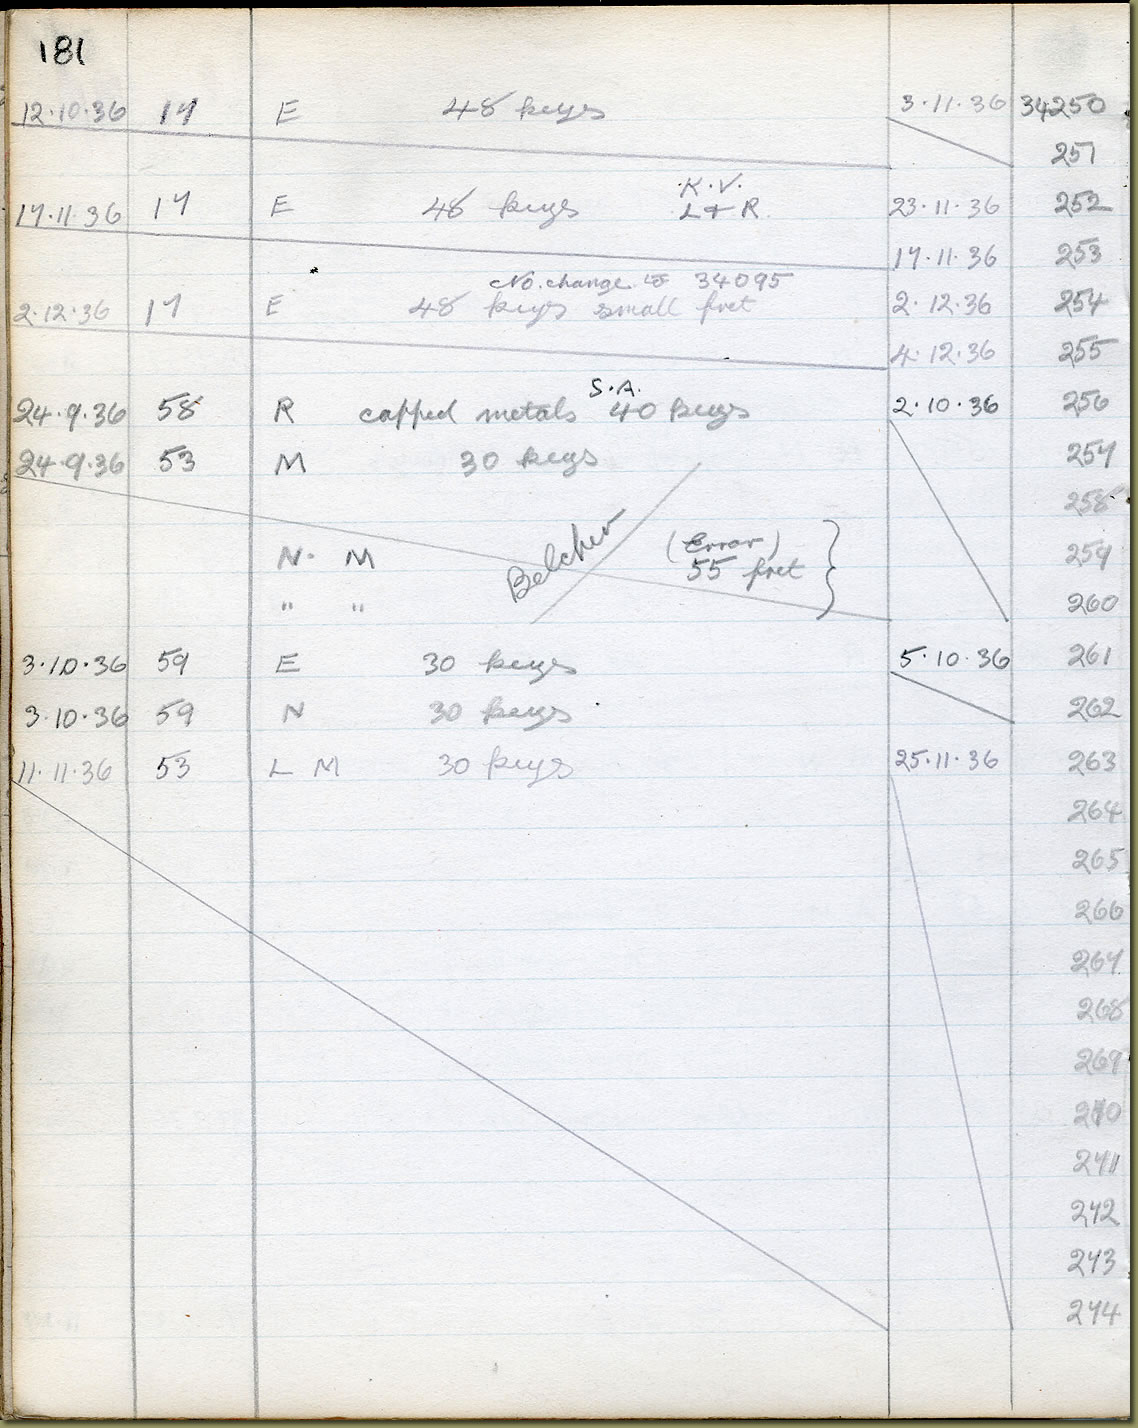 181
12.10.36 17 E 48 keys 3.11.36 34250
251
K.V.
17.11.36 17 E 48 keys L & R. 23.11.36 252
17.11.36 253
No. change to 34095
2.12.36 17 E 48 keys small fret 2.12.36 254
4.12.36 255
S.A.
24.9.36 58 R capped metals 40 keys 2.10.36 256
24.9.36 53 M 30 keys 257
258
N. M Belcher (Error) 259
55 fret
" " 260
3.10.36 59 E 30 keys 5.10.36 261
3.10.36 59 N 30 keys 262
11.11.36 53 L M 30 keys 25.11.36 263
264
265
266
267
268
269
270
271
272
273
274